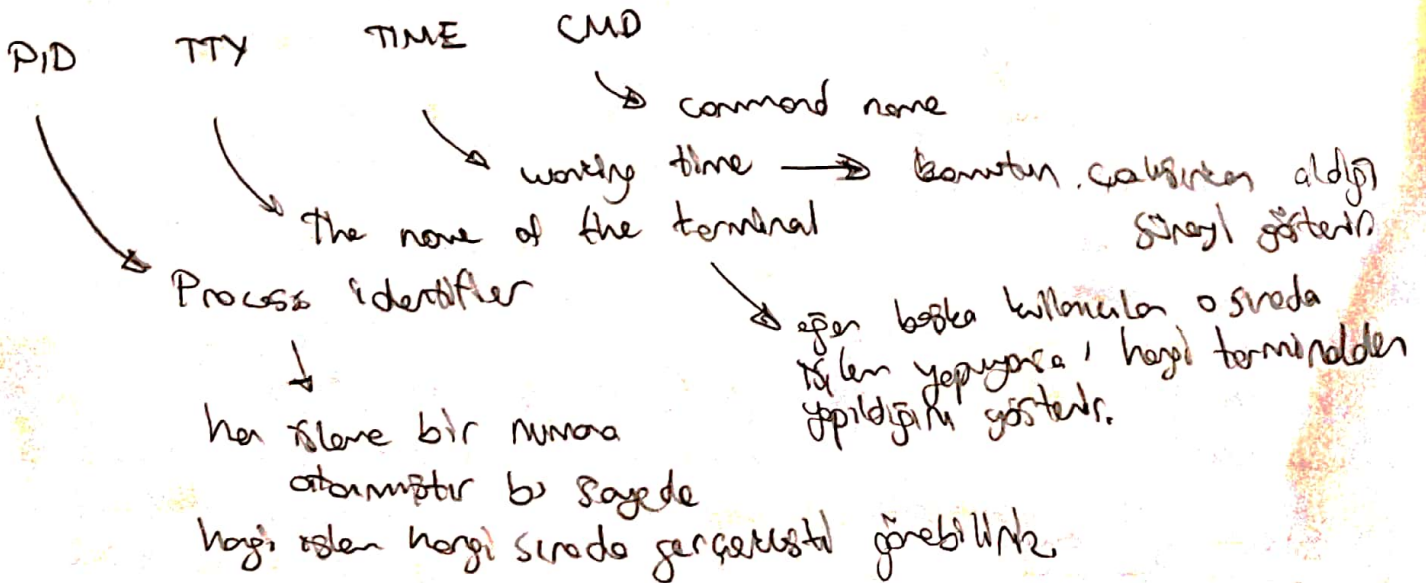 PID TTY TIME CMD
command name
working time → komutun çalışırken aldığı
süreyi gösterir
the name of the terminal
Process identifier
eğer başka kullanıcılar o sırada
işlem yapıyorsa, hangi terminalden
yapıldığını gösterir.
her işleme bir numara
atanmıştır bu sayede
hangi işlem hangi sırada gerçekleşti görebiliriz